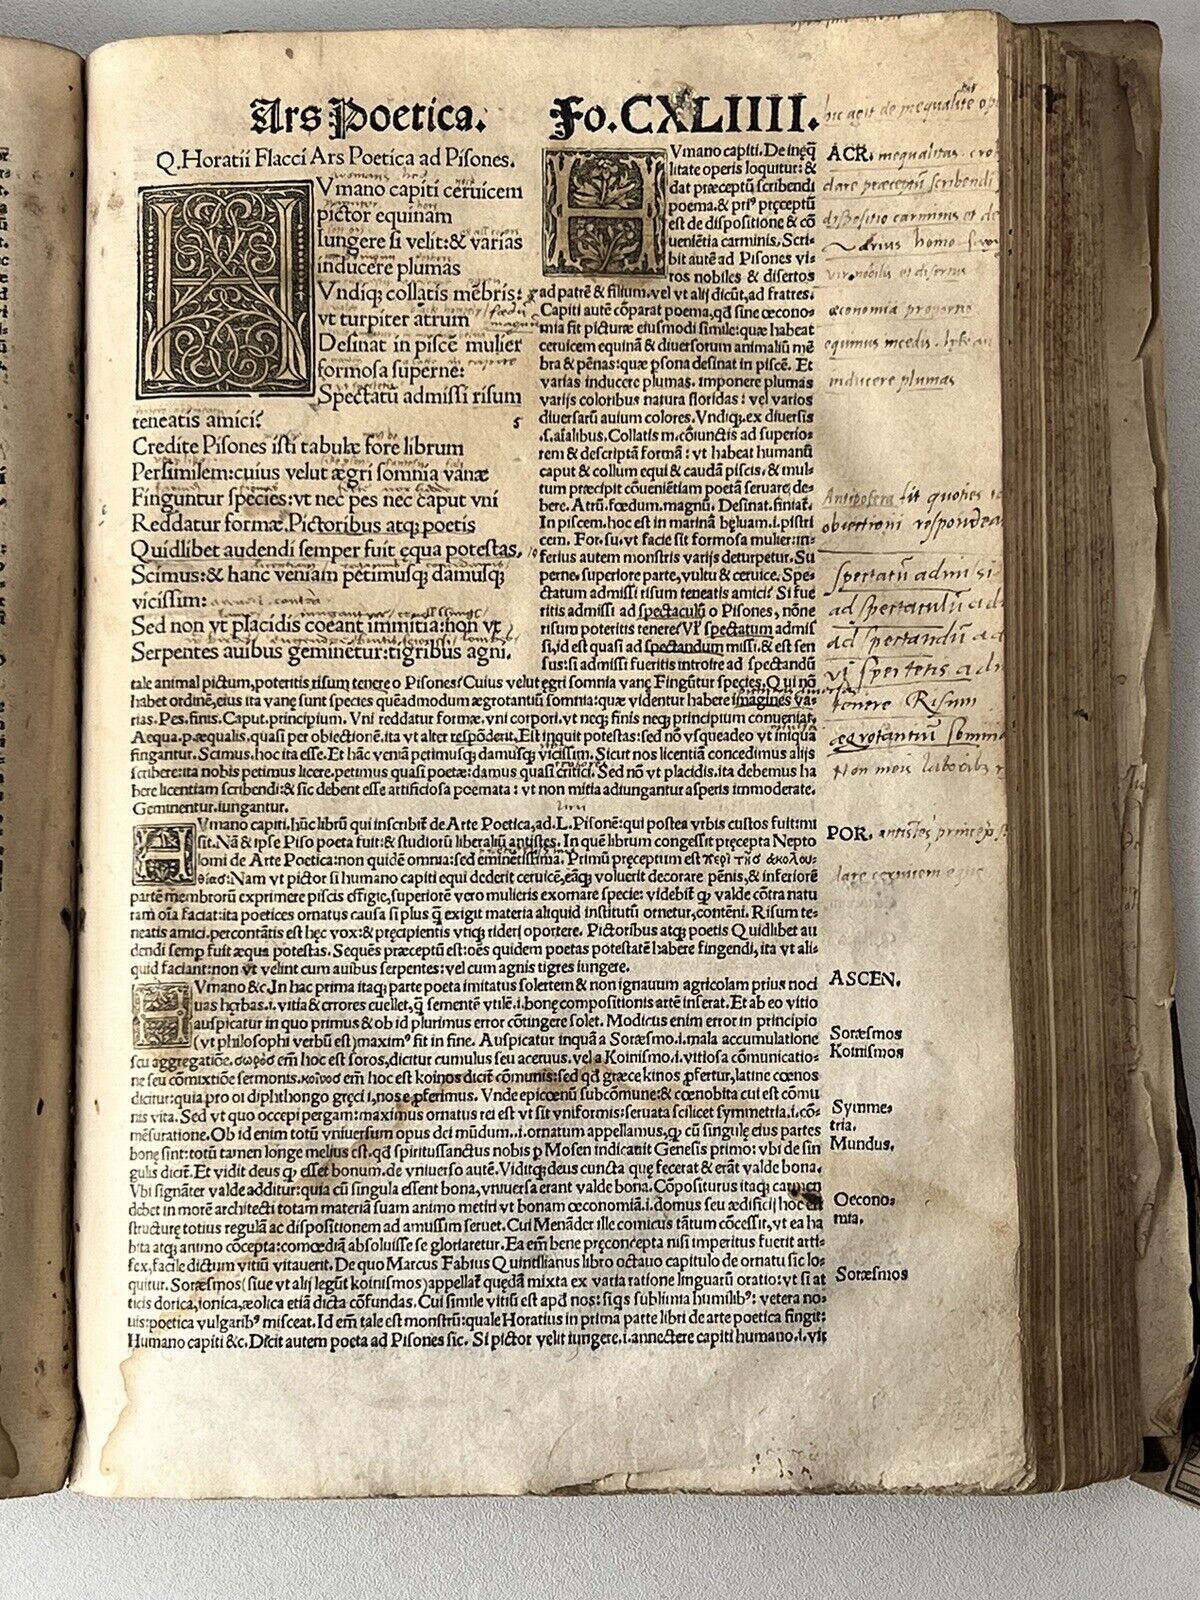 Ars Poetica. Fo. CXLIIII.
Q. Horatii Flacci Ars Poetica ad Piſones.
HVmano capiti ceruicem
pictor equinam
Iungere ſi velit:& varias
inducere plumas
Vndiq; collatis mēbris:
vt turpiter atrum
Deſinat in piſcē mulier
formoſa ſuperne:
Spectatū admiſſi riſum
teneatis amici? 5
Credite Piſones iſti tabulæ fore librum
Perſimilem:cuius velut ægri ſomnia vanæ
Finguntur ſpecies:vt nec pes nec caput vni
Reddatur formæ.Pictoribus atq; poetis
Quidlibet audendi ſemper fuit ęqua poteſtas. 10
Scimus:& hanc veniam petimuſq; damuſq;
viciſſim:
Sed non vt placidis coeant immitia:non vt
Serpentes auibus geminetur:tigribus agni.
ACR.
HVmano capiti. De inęq̄
litate operis loquitur: &
dat præceptū ſcribendi
poema.& priꝰ pręceptū
eſt de diſpoſitione & cō
ueniētia carminis. Scri-
bit autē ad Piſones vi-
ros nobiles & diſertos
ad patrē & filium.vel vt alij dicūt,ad fratres.
Capiti autē cōparat poema,qđ ſine œcono-
mia fit picturæ eiuſmodi ſimile:quæ habeat
ceruicem equinā & diuerſorum animaliū mē
bra & pēnas:quæ pſona deſinat in piſcē. Et
varias inducere plumas. imponere plumas
varijs coloribus natura floridas: vel varios
diuerſarū auium colores. Vndiq;. ex diuerſis
.ſ.aīalibus. Collatis m.cōiunctis ad ſuperio-
rem & deſcriptā formā: vt habeat humanū
caput & collum equi & caudā piſcis.& mul-
tum præcipit cōueniētiam poetā ſeruare de-
bere. Atrū.fœdum.magnū. Deſinat.finiat.
In piſcem.hoc eſt in marinā bęluam.i.piſtri
cem. For.ſu.vt facie ſit formoſa mulier:in-
ferius autem monſtris varijs deturpetur. Su
perne.ſuperiore parte,vultu & ceruice. Spe-
ctatum admiſſi riſum teneatis amici? Si fue
ritis admiſſi ad ſpectaculū o Piſones, nōne
riſum poteritis tenere? Vł ſpectatum admiſ
ſi,id eſt quaſi ad ſpectandum miſſi.& eſt ſen
ſus:ſi admiſſi fueritis introire ad ſpectandū
tale animal pictum,poteritis riſum tenere o Piſones? Cuius velut ęgri ſomnia vanę Fingūtur ſpecies. Qui nō
habet ordinē,eius ita vanę ſunt ſpecies quēadmodum ægrotantiū ſomnia: quæ videntur habere imagines va-
rias. Pes. finis. Caput.principium. Vni reddatur formæ.vni corpori.vt neq; finis neq; principium conueniat.
Aequa.p̄æqualis.quaſi per obiectionē.ita vt alter reſpōderit. Eſt inquit poteſtas: ſed nō vſqueadeo vt iniqua
fingantur. Scimus.hoc ita eſſe. Et hāc veniā petimuſq; damuſq; viciſſim. Sicut nos licentiā concedimus alijs
ſcribere:ita nobis petimus licere.petimus quaſi poetæ:damus quaſi critici. Sed nō vt placidis.ita debemus ha
bere licentiam ſcribendi:& ſic debent eſſe artificioſa poemata: vt non mitia adiungantur aſperis immoderate.
Geminentur.iungantur.
POR.
HVmano capiti.hūc librū qui inſcribit̄ de Arte Poetica,ad.L.Piſonē:qui poſtea vrbis cuſtos fuit:mi
ſit. Nā & ipſe Piſo poeta fuit:& ſtudiorū liberaliū antiſtes. In quē librum congeſſit pręcepta Nepto
lomi de Arte Poetica:non quidē omnia:ſed eminētiſſima. Primū pręceptum eſt περὶ τῆσ ἀκολου-
θίασ: Nam vt pictor ſi humano capiti equi dederit ceruicē,eāq; voluerit decorare pēnis,& inferiorē
partē membrorū exprimere piſcis effigie, ſuperiorē vero mulieris exornare ſpecie: videbit̄ ꝙ valde cōtra natu
ram oīa faciat:ita poetices ornatus cauſa ſi plus q̄ exigit materia aliquid inſtitutū ornetur,contēni. Riſum te-
neatis amici.percontātis eſt hęc vox:& pręcipientis vtiq; rideri oportere. Pictoribus atq; poetis Quidlibet au
dendi ſemp fuit æqua poteſtas. Sequēs præceptū eſt:oēs quidem poetas poteſtatē habere fingendi,ita vt ali-
quid faciant:non vt velint cum auibus ſerpentes:vel cum agnis tigres iungere.
ASCEN.
HVmano &c.In hac prima itaq; parte poeta imitatus ſolertem & non ignauum agricolam prius noci
uas hęrbas.i.vitia & errores cuellet,q̄ ſementē vtilē.i.bonę compoſitionis artē inſerat. Et ab eo vitio
auſpicatur in quo primus & ob id plurimus error cōtingere ſolet. Modicus enim error in principio
(vt philoſophi verbū eſt)maximꝰ fit in fine. Auſpicatur inquā a Soræſmo.i.mala accumulatione
Soræſmos
ſeu aggregatiōe. σωρὸσ em̄ hoc eſt ſoros,dicitur cumulus ſeu aceruus.vel a Koiniſmo.i.vitioſa cōmunicatio-
Koiniſmos
ne ſeu cōmixtiōe ſermonis.κοῖνοσ em̄ hoc eſt koinos dicit̄ cōmunis:ſed qđ græce kinos ꝓfertur,latine cœnos
dicitur:quia pro oi diphthongo gręci i,nos e ꝓferimus. Vnde epicœnū ſubcōmune:& cœnobita cui eſt cōmu
nis vita. Sed vt quo occepi pergam:maximus ornatus rei eſt vt ſit vniformis:ſeruata ſcilicet ſymmetria.i.cō-
Symme-
tria.
mēſuratione. Ob id enim totū vniuerſum opus dei mūdum..i.ornatum appellamus,ꝙ cū ſingulę eius partes
Mundus.
bonę ſint:totū tamen longe melius eſt.qđ ſpirituſſanctus nobis ꝑ Moſen indicauit Geneſis primo: vbi de ſin
gulis dicit̄. Et vidit deus ꝙ eſſet bonum.de vniuerſo autē. Viditq; deus cuncta quę fecerat & erāt valde bona.
Vbi ſignāter valde additur:quia cū ſingula eſſent bona,vniuerſa erant valde bona. Cōpoſiturus itaq; carmen
debet in morē architecti totam materiā ſuam animo metiri vt bonam œconomiā.i.domus ſeu ædificij hoc eſt
Oecono-
mia.
ſtructurę totius regulā ac diſpoſitionem ad amuſſim ſeruet. Cui Menāder ille comicus tātum cōceſſit,vt ea ha
bita atq; animo cōcepta:comœdiā abſoluiſſe ſe gloriaretur. Ea em̄ bene pręconcepta niſi imperitus fuerit arti-
fex,facile dictum vitiū vitauerit. De quo Marcus Fabius Quintilianus libro octauo capitulo de ornatu ſic lo-
quitur. Soræſmos(ſiue vt alij legūt koiniſmos)appellat̄ quędā mixta ex varia ratione linguarū oratio:vt ſi at
Soræſmos
ticis dorica,ionica,æolica etiā dicta cōfundas. Cui ſimile vitiū eſt apđ nos:ſiqs ſublimia humilibꝰ: vetera no-
uis:poetica vulgaribꝰ miſceat. Id em̄ tale eſt monſtrū:quale Horatius in prima parte libri de arte poetica fingit:
Humano capiti &c. Dicit autem poeta ad Piſones ſic. Si pictor velit iungere.i.annectere capiti humano.i.vir
hic agit de inequalitate
inequalitas
dare præceptū ſcribendi
diſpoſitio carminis et
Varius homo
vir nobilis et diſertus
œconomia
inducere plumas
fit quoties
obiectioni
ſpectatū admiſſi
ad ſpectaculū
ad ſpectandū
tenere Riſum
ægrotantiū ſomnia